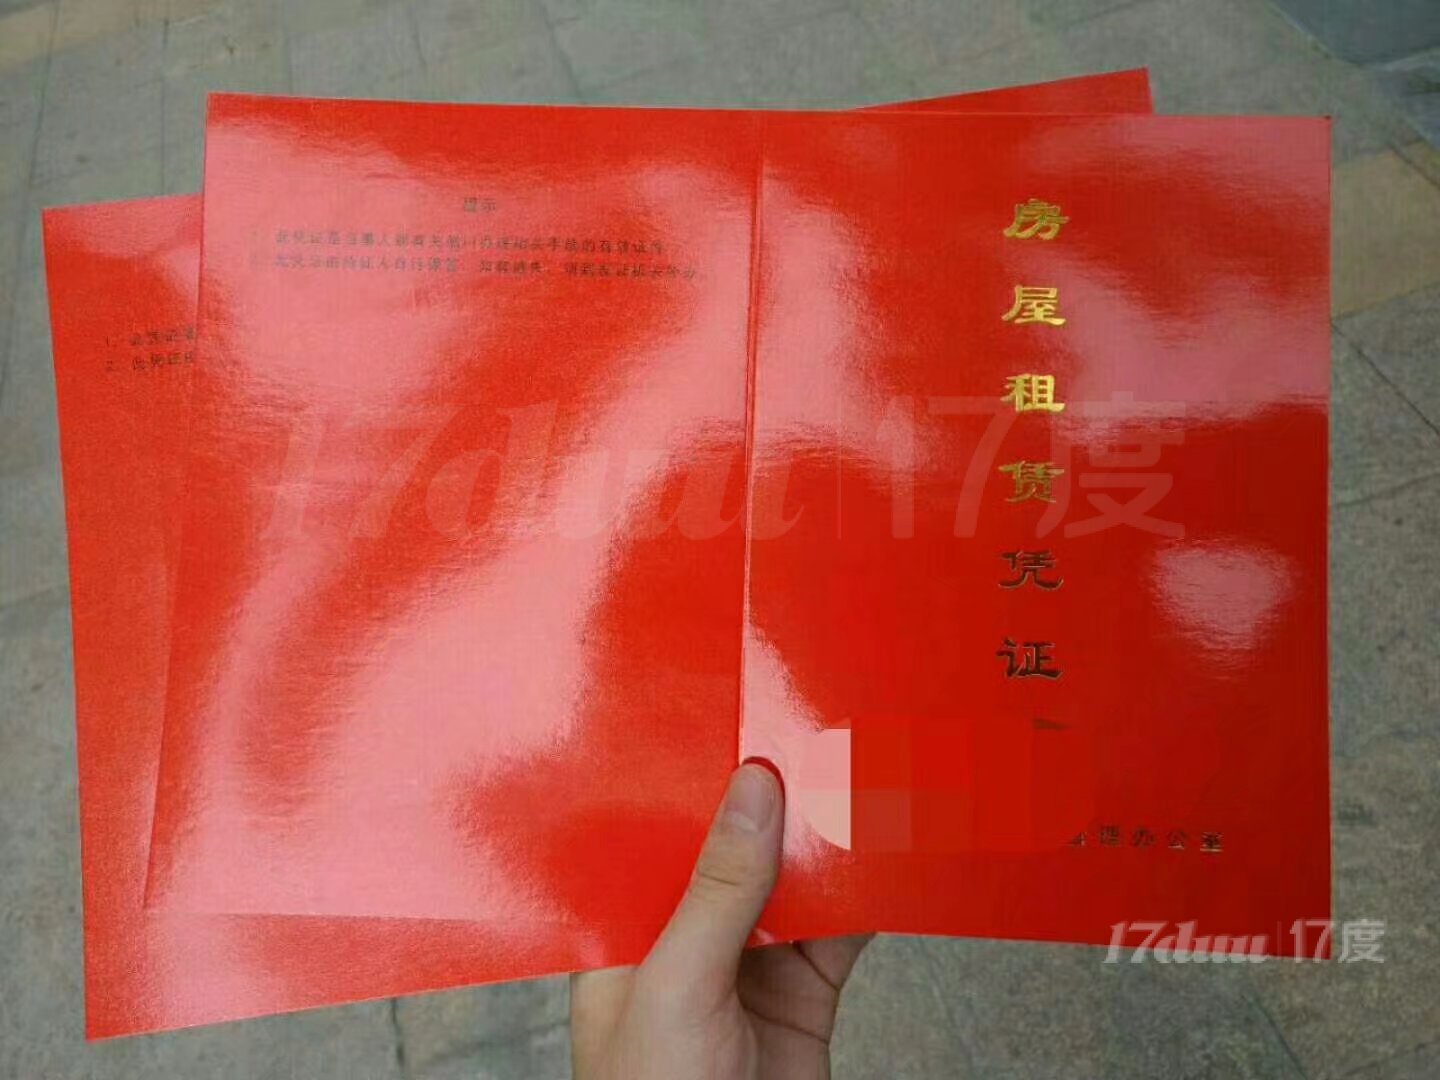 提示
1、此凭证是当事人到有关部门办理相关手续的有效证件。
2、此凭证由持证人自行保管，如有遗失，请到发证机关补办。
1、此凭证是
2、此凭证由
房屋租赁凭证
管理办公室
17duu|17度
17duu|17度